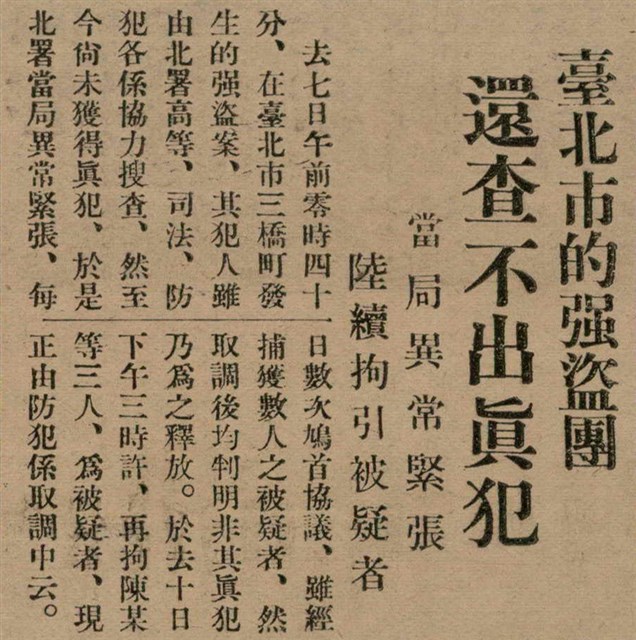 臺北市的强盜團
還查不出眞犯
當局異常緊張
陸續拘引被疑者
去七日午前零時四十
分、在臺北市三橋町發
生的强盜案、其犯人雖
由北署高等、司法、防
犯各係協力搜查、然至
今尙未獲得眞犯、於是
北署當局異常緊張、每
日數次鳩首協議、雖經
捕獲數人之被疑者、然
取調後均判明非其眞犯
乃爲之釋放。於去十日
下午三時許、再拘陳某
等三人、爲被疑者、現
正由防犯係取調中云。